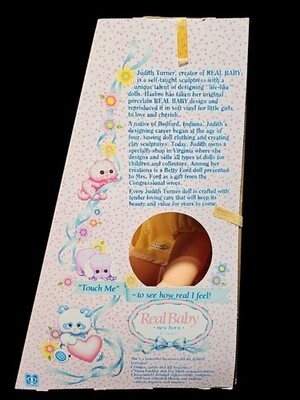 Judith Turner, creator of REAL BABY,
is a self-taught sculptress with a
unique talent of designing life-like
dolls. Hasbro has taken her original
porcelain REAL BABY design and
reproduced it in soft vinyl for little girls
to love and cherish.
A native of Bedford, Indiana, Judith's
designing career began at the age of
four, sewing doll clothing and creating
clay sculptures. Today, Judith owns a
specialty shop in Virginia where she
designs and sells all types of dolls for
children and collectors. Among her
creations is a Betty Ford doll presented
to Mrs. Ford as a gift from the
Congressional wives.
Every Judith Turner doll is crafted with
tender loving care that will keep its
beauty and value for years to come.
"Touch Me" – to see how real I feel!
Real Baby
• new born •